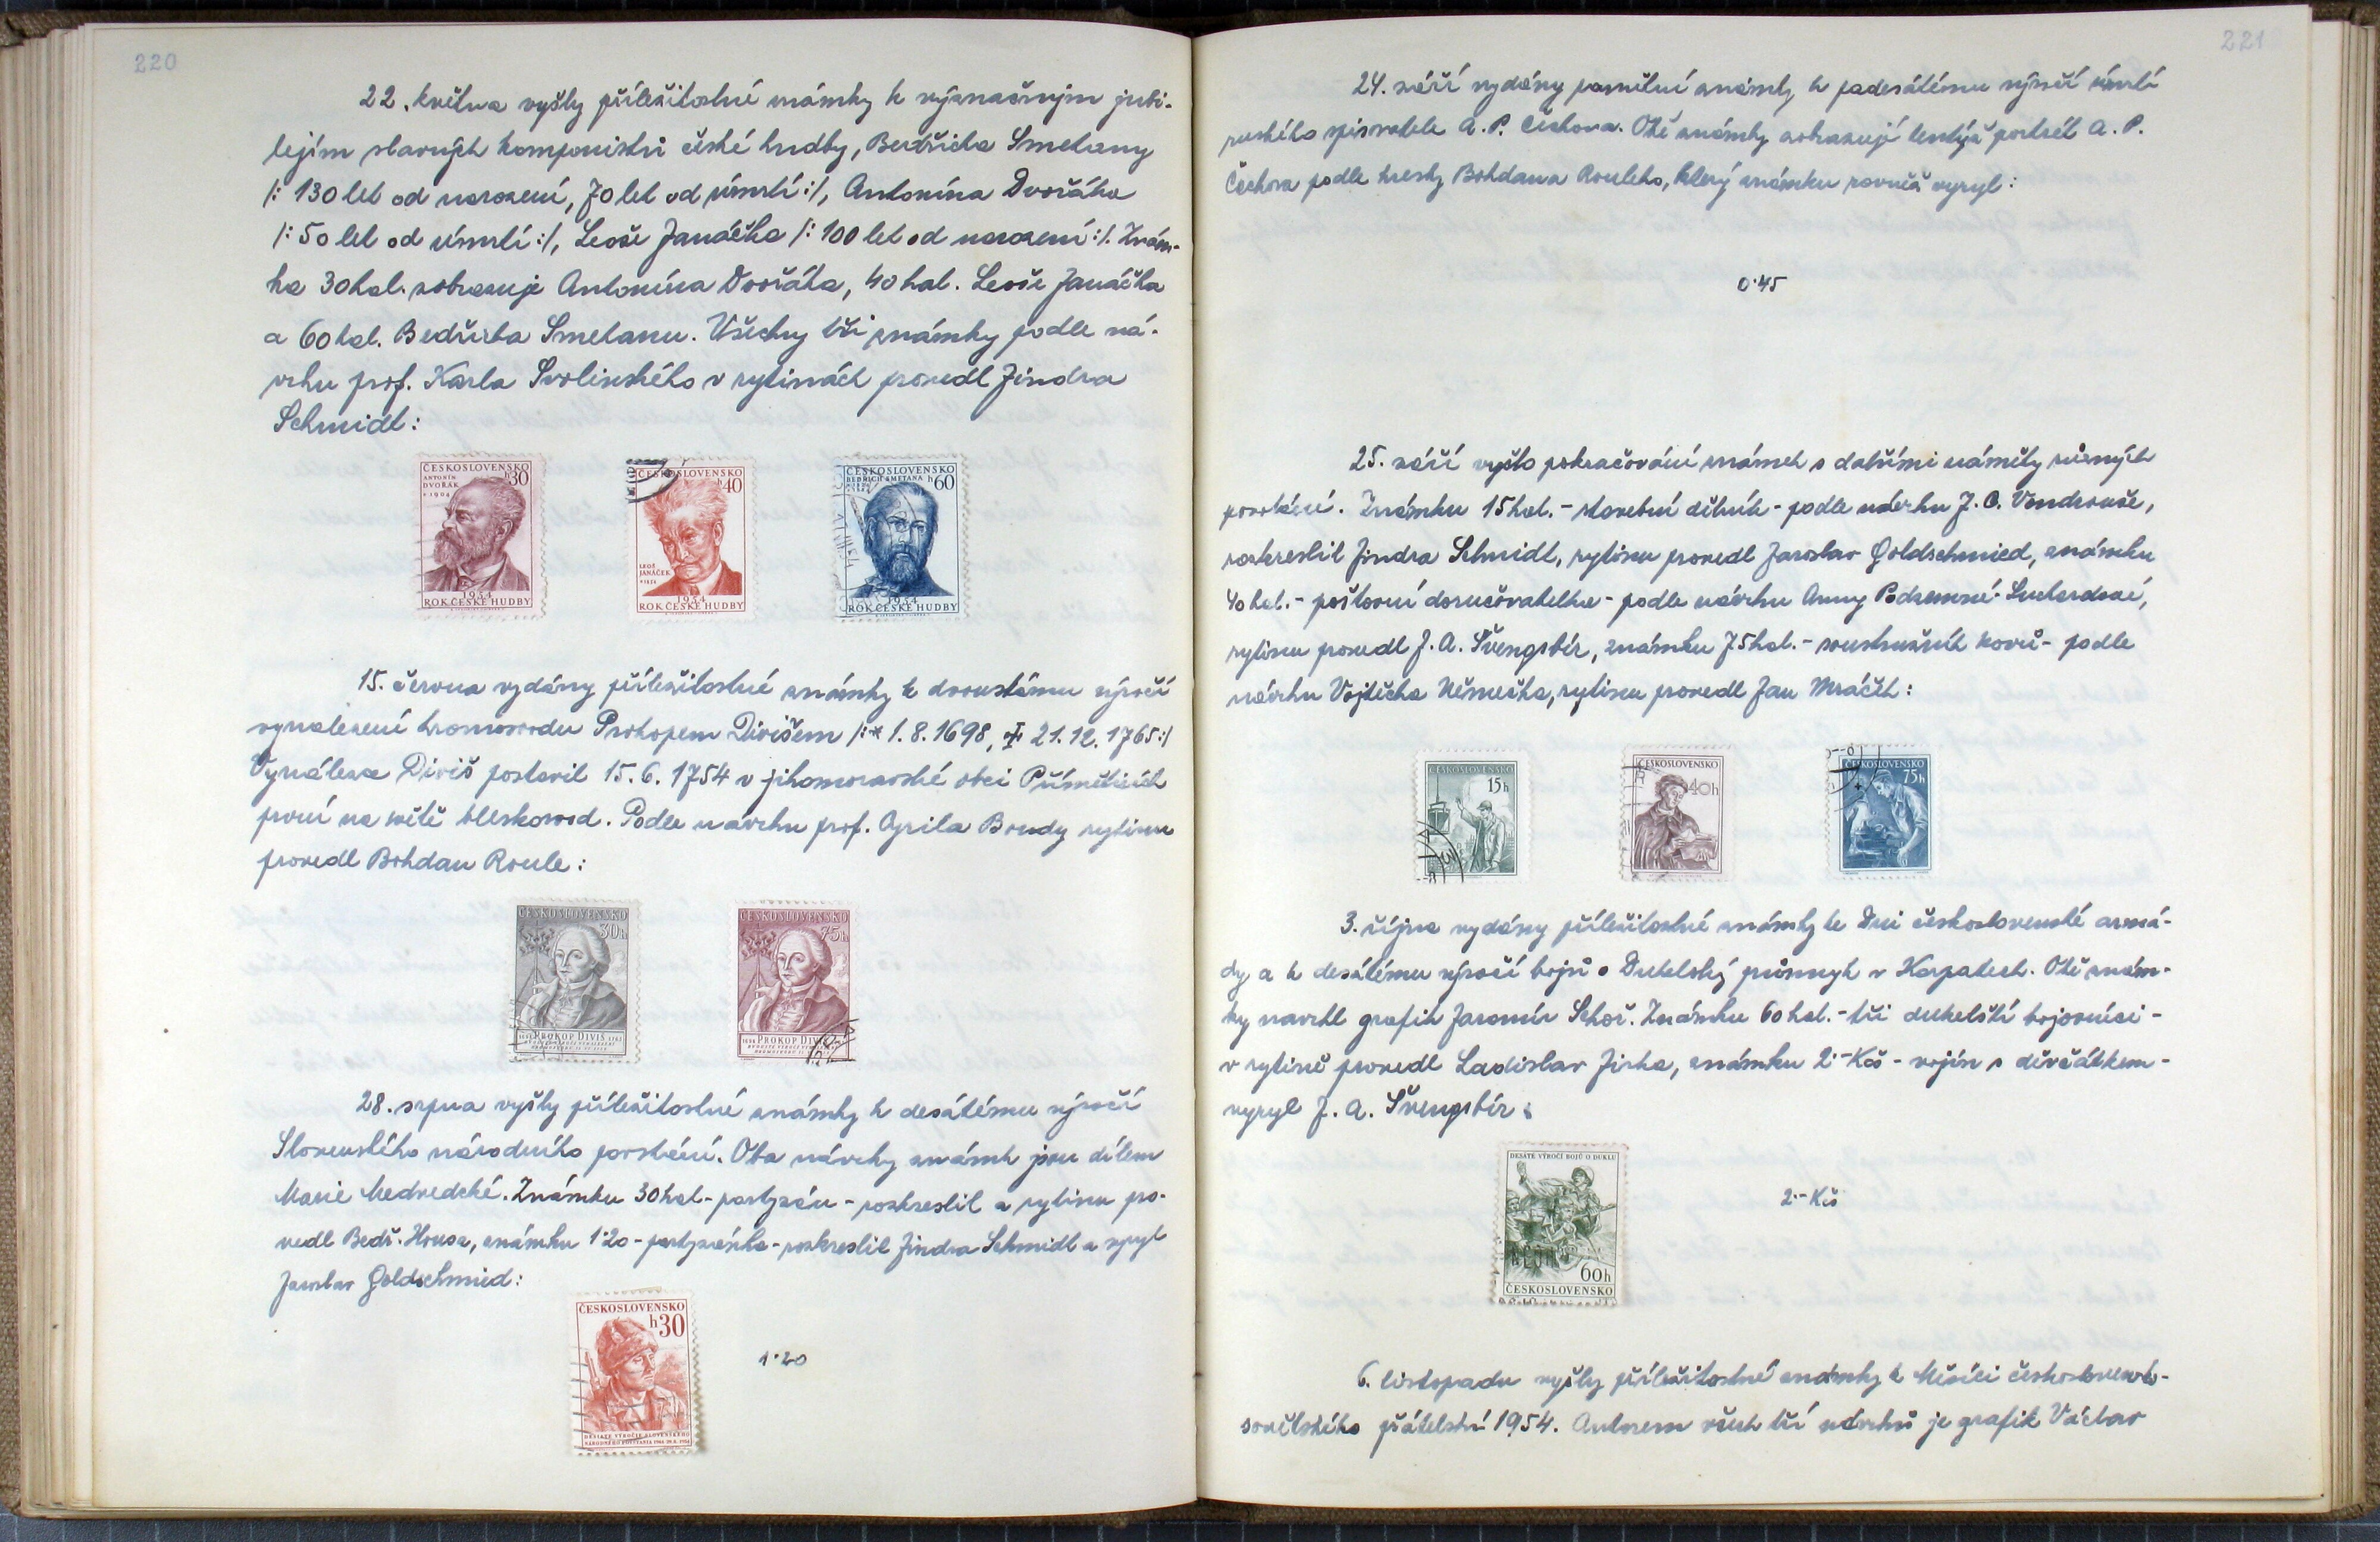 220
22. května vyšly příležitostné známky k význačným jubi-
lejím slavných komponistů české hudby, Bedřicha Smetany
/: 130 let od narození, 70 let od úmrtí :/, Antonína Dvořáka
/: 50 let od úmrtí :/, Leoše Janáčka /: 100 let od narození :/. Znám-
ka 30 hal. zobrazuje Antonína Dvořáka, 40 hal. Leoše Janáčka
a 60 hal. Bedřicha Smetanu. Všechny tři známky podle ná-
vrhu prof. Karla Svolinského v rytinách provedl Jindra
Schmidt:
ČESKOSLOVENSKO
h30
ANTONÍN
DVOŘÁK
1904
1954
ROK ČESKÉ HUDBY
ČESKOSLOVENSKO
h40
LEOŠ
JANÁČEK
1954
ROK ČESKÉ HUDBY
ČESKOSLOVENSKO
BEDŘICH SMETANA
h60
1954
ROK ČESKÉ HUDBY
15. června vydány příležitostné známky k dvoustému výročí
vynalezení hromosvodu Prokopem Divišem /:* 1.8.1698, † 21.12.1765:/
Vynálezce Diviš postavil 15.6.1754 v jihomoravské obci Příměticích
první na světě bleskosvod. Podle návrhu prof. Cyrila Boudy rytinu
provedl Bohdan Roule:
ČESKOSLOVENSKO
30h
PROKOP DIVIŠ
ČESKOSLOVENSKO
75h
PROKOP DIVIŠ
28. srpna vyšly příležitostné známky k desátému výročí
Slovenského národního povstání. Oba návrhy známk jsou dílem
Marie Medvedcké. Známku 30 hal - partyzán - rozkreslil a rytinu pro-
vedl Bedř. Housa, známku 1·20 - partyzánka - rozkreslil Jindra Schmidt a vyryl
Jaroslav Goldschmied:
ČESKOSLOVENSKO
h30
DESIATE VÝROČIE SLOVENSKÉHO
NÁRODNÉHO POVSTANIA
1·20
221
24. září vydány pamětní známky k padesátému výročí úmrtí
ruského spisovatele A. P. Čechova. Obě známky zobrazují tentýž portrét A. P.
Čechova podle kresby Bohdana Rouleho, který známku rovněž vyryl:
0·45
25. září vyšlo pokračování známek s dalšími náměty různých
povolání. Známku 15 hal. - stavební dělník - podle návrhu J. C. Vondrouše,
rozkreslil Jindra Schmidt, rytinu provedl Jaroslav Goldschmied, známku
40 hal. - poštovní doručovatelka - podle návrhu Anny Podzemné-Suchardové,
rytinu provedl J. A. Švengsbír, známku 75 hal. - soustružník kovů - podle
návrhu Vojtěcha Němečka, rytinu provedl Jan Mráček:
ČESKOSLOVENSKO
15h
ČESKOSLOVENSKO
40h
ČESKOSLOVENSKO
75h
3. října vydány příležitostné známky ke Dni československé armá-
dy a k desátému výročí bojů o Dukelský průsmyk v Karpatech. Obě znám-
ky navrhl grafik Jaromír Schoř. Známku 60 hal. - tři dukelští bojovníci -
v rytině provedl Ladislav Jirka, známku 2·- Kčs - vojín s děvčátkem -
vyryl J. A. Švengsbír:
DESÁTÉ VÝROČÍ BOJŮ O DUKLU
60h
ČESKOSLOVENSKO
2·- Kčs
6. listopadu vyšly příležitostné známky k Měsíci československo-
sovětského přátelství 1954. Autorem všech tří návrhů je grafik Václav